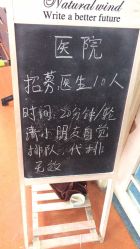 Natural wind
Write a better future
医院
招募医生10人
时间:20分钟/轮
请小朋友自觉
排队,代排
无效